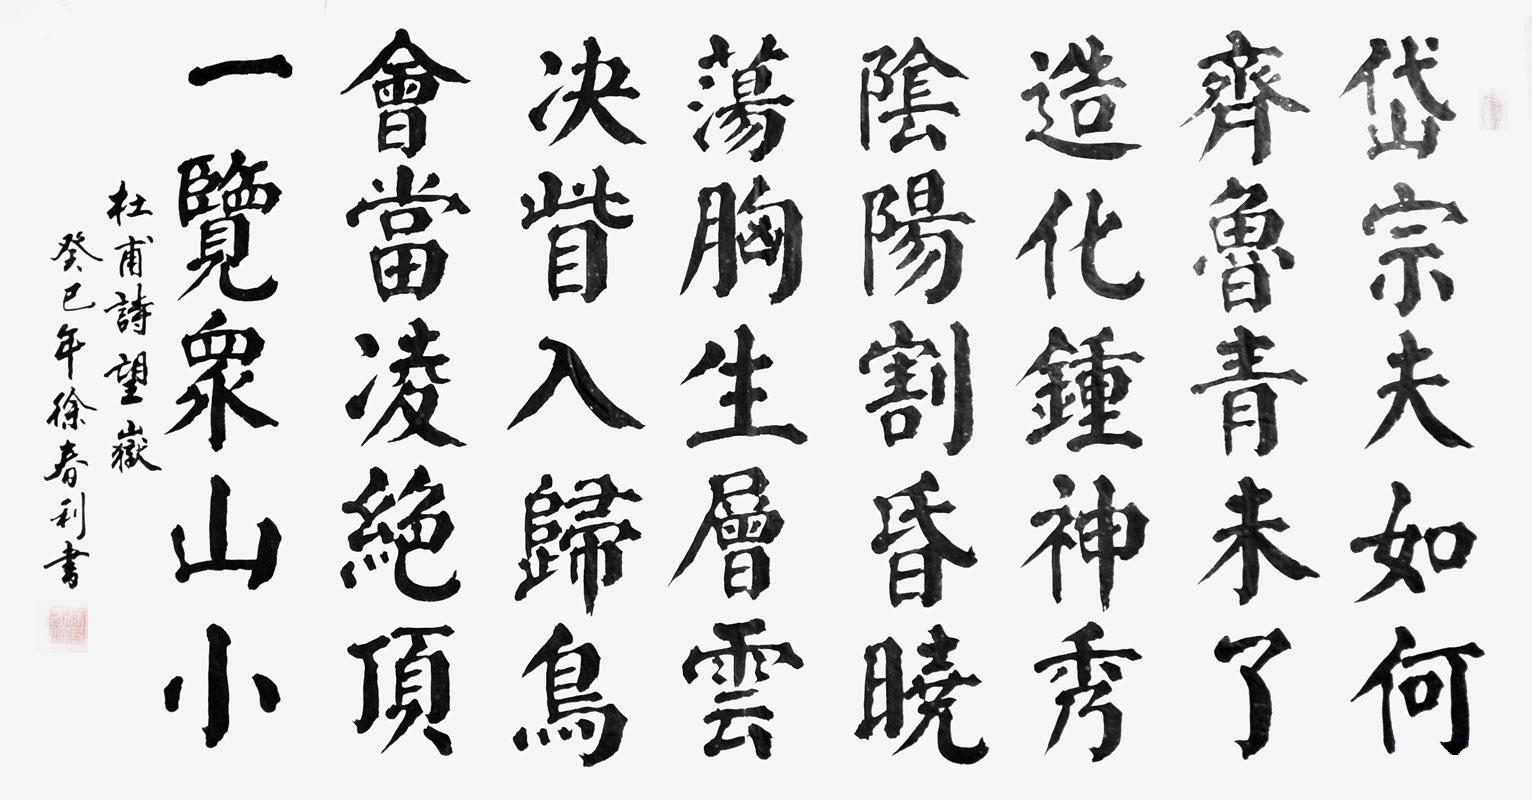 岱宗夫如何
齊魯青未了
造化鍾神秀
陰陽割昏曉
蕩胸生層雲
决眥入歸鳥
會當凌絕頂
一覽眾山小
杜甫詩望嶽
癸巳年徐春利書